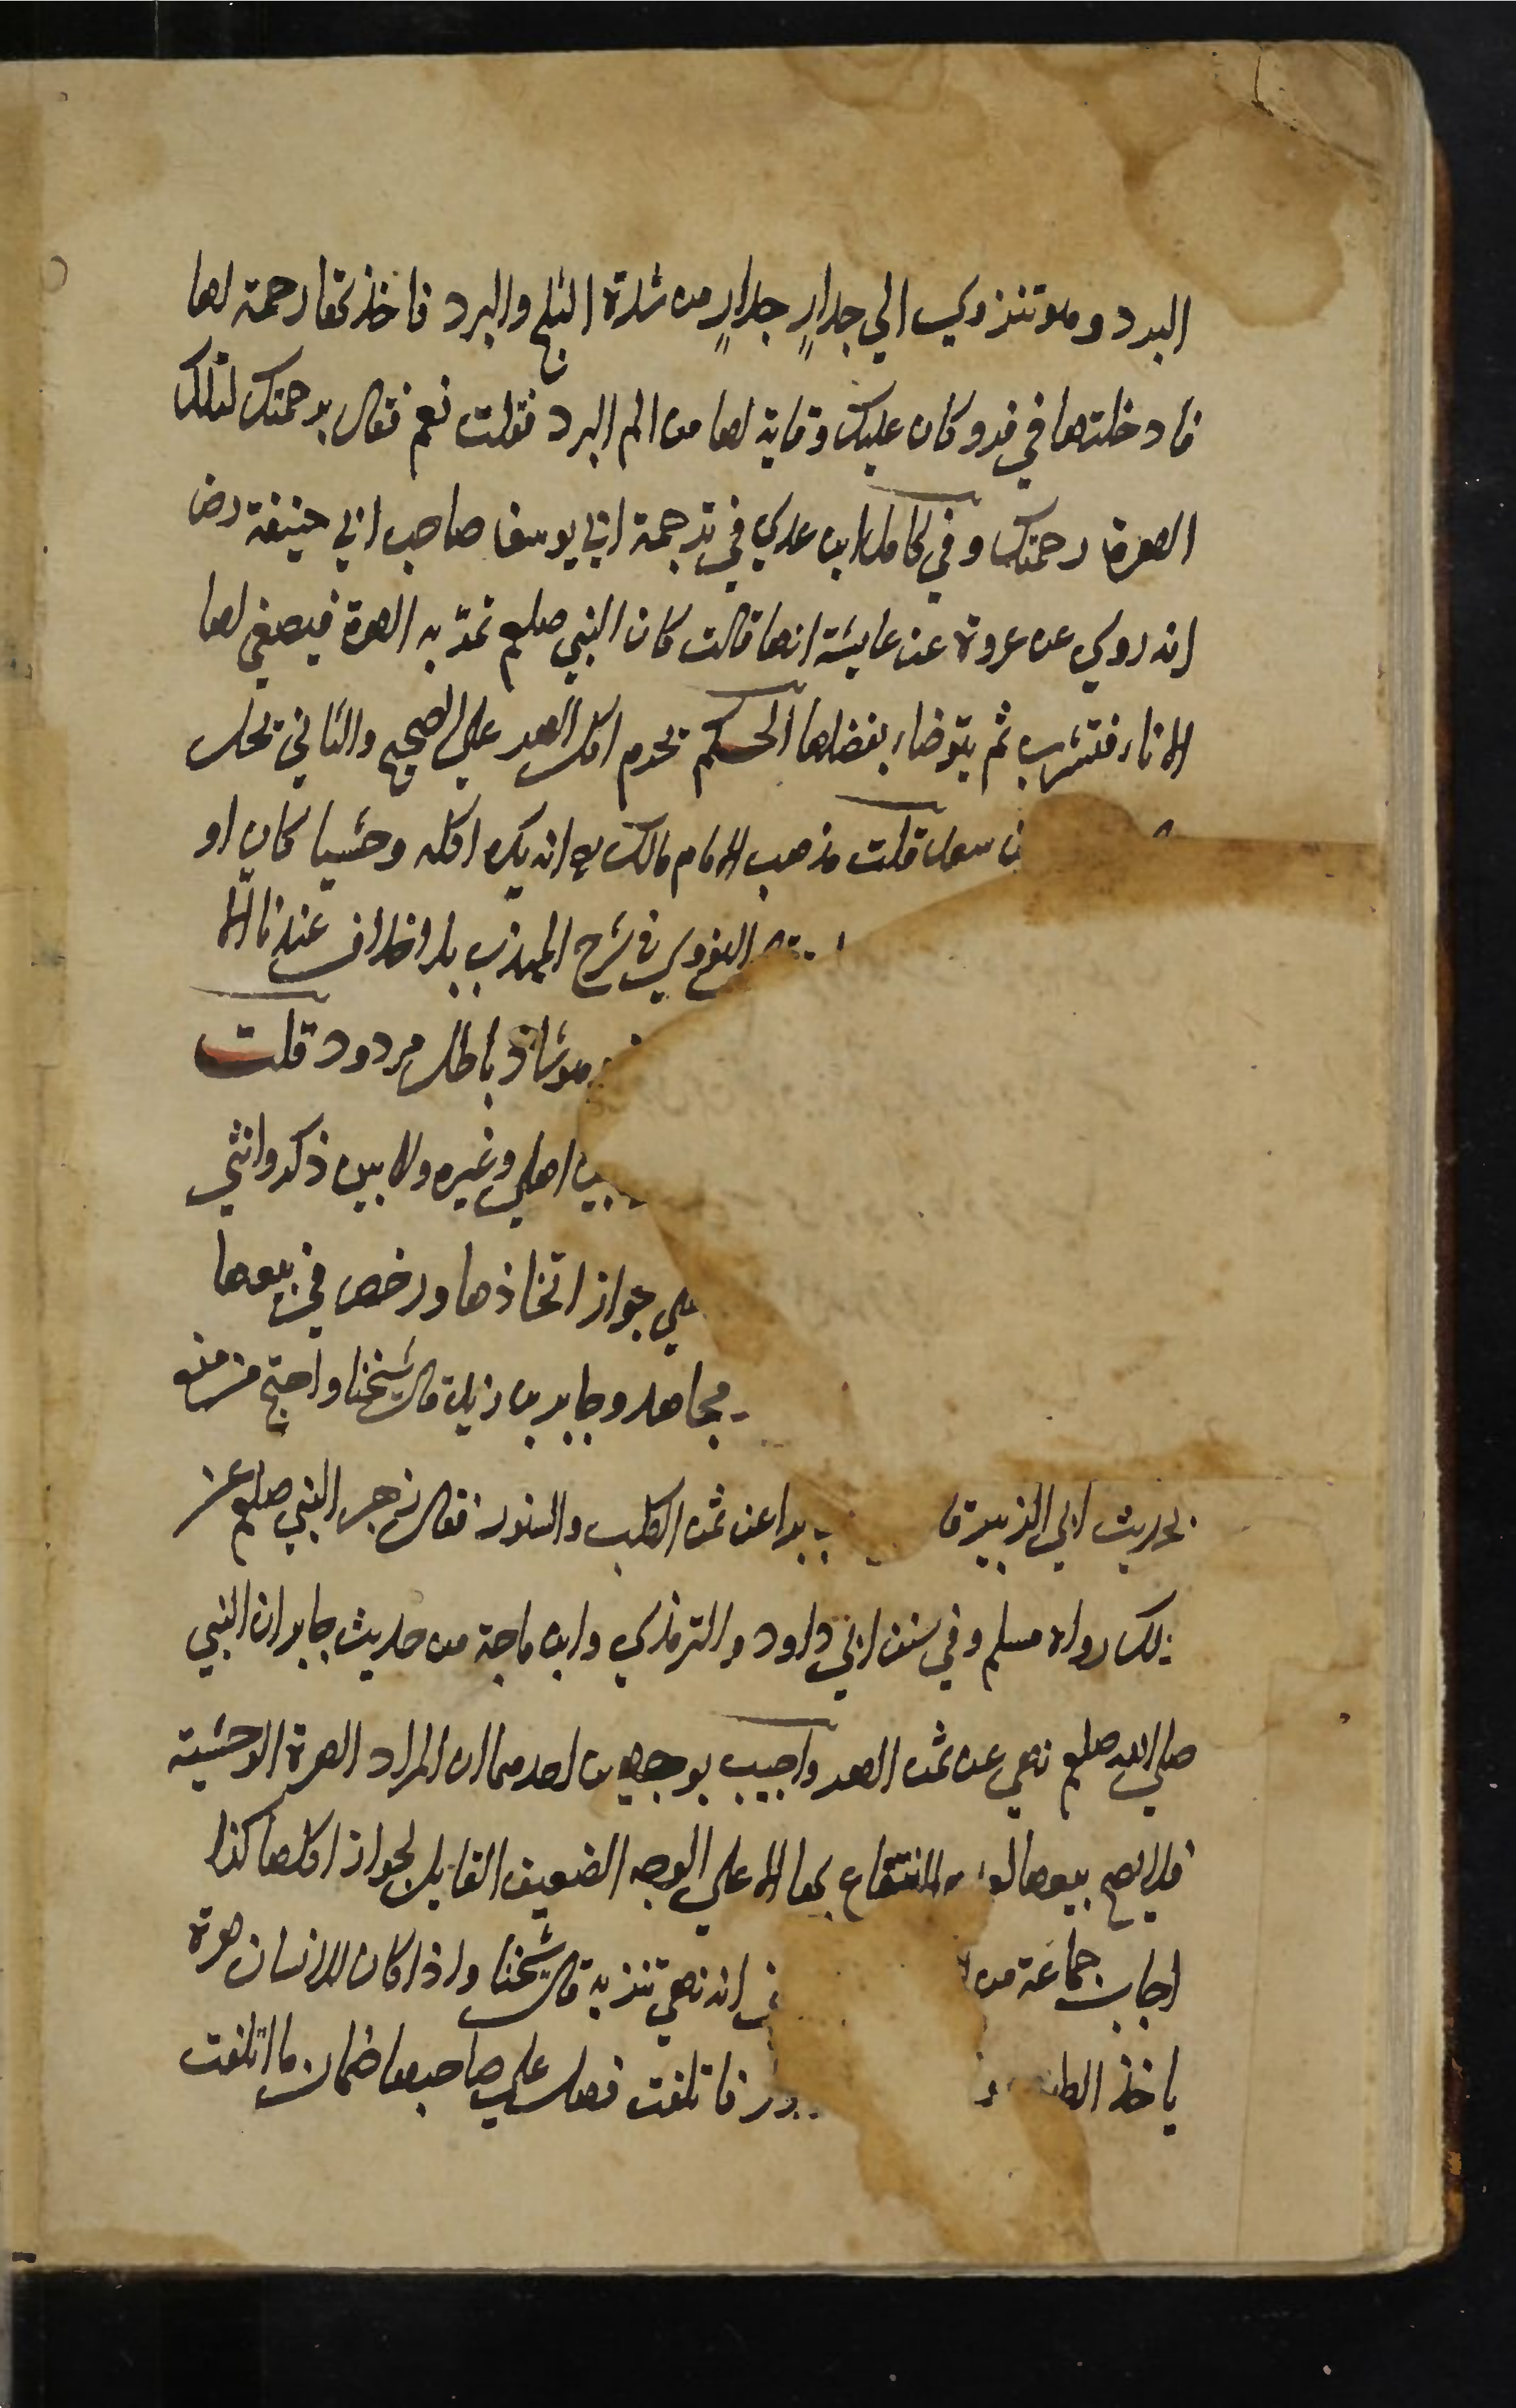 البرد وهو تنزوي الي جدارٍ جدارٍ من شدة الثلج والبرد فاخذتها رحمة لها
فادخلتها في فرو كان عليك وقاية لها من الم البرد فقلت نعم فقال برحمتك لتلك
الهرة رحمتك وفي كامل ابن عدي في ترجمة ابي يوسف صاحب ابي حنيفة رض
انه روي عن عروة عن عايشة انها قالت كان النبي صلعم تمرّ به الهرة فيصغي لها
الاناء فتشرب ثم يتوضاء بفضلها الحكم يحرم اكل الهر علي الصحيح والثاني يحل
قلت مذهب الامام مالك انه يكره اكله وحشيا كان او
النووي في شرح المهذب بلا خلاف عندنا الا
وهو شاذ باطل مردود قلت
بين اهلي وغيره ولا بين ذكر وانثي
علي جواز اتخاذها ورخص في بيعها
مجاهد وجابر بن زيد قال شيخنا واحتج من منع
بحديث ابي الزبير قا برا عن ثمن الكلب والسنور فقال زجر النبي صلعم عن
ذلك رواه مسلم وفي سنن ابي داود والترمذي وابن ماجة من حديث جابر ان النبي
صلي الله صلعم نهي عن ثمن الهر واجيب بوجهين احدهما ان المراد الهرة الوحشية
فلا يصح بيعها لعدم الانتفاع بها الا علي الوجه الضعيف القايل بجواز اكلها كذا
اجاب جماعة من انه نهي تنزيه قال شيخنا واذا كان للانسان هرة
ياخذ الطيور فاتلفت فهل علي صاحبها ضمان ما اتلفت